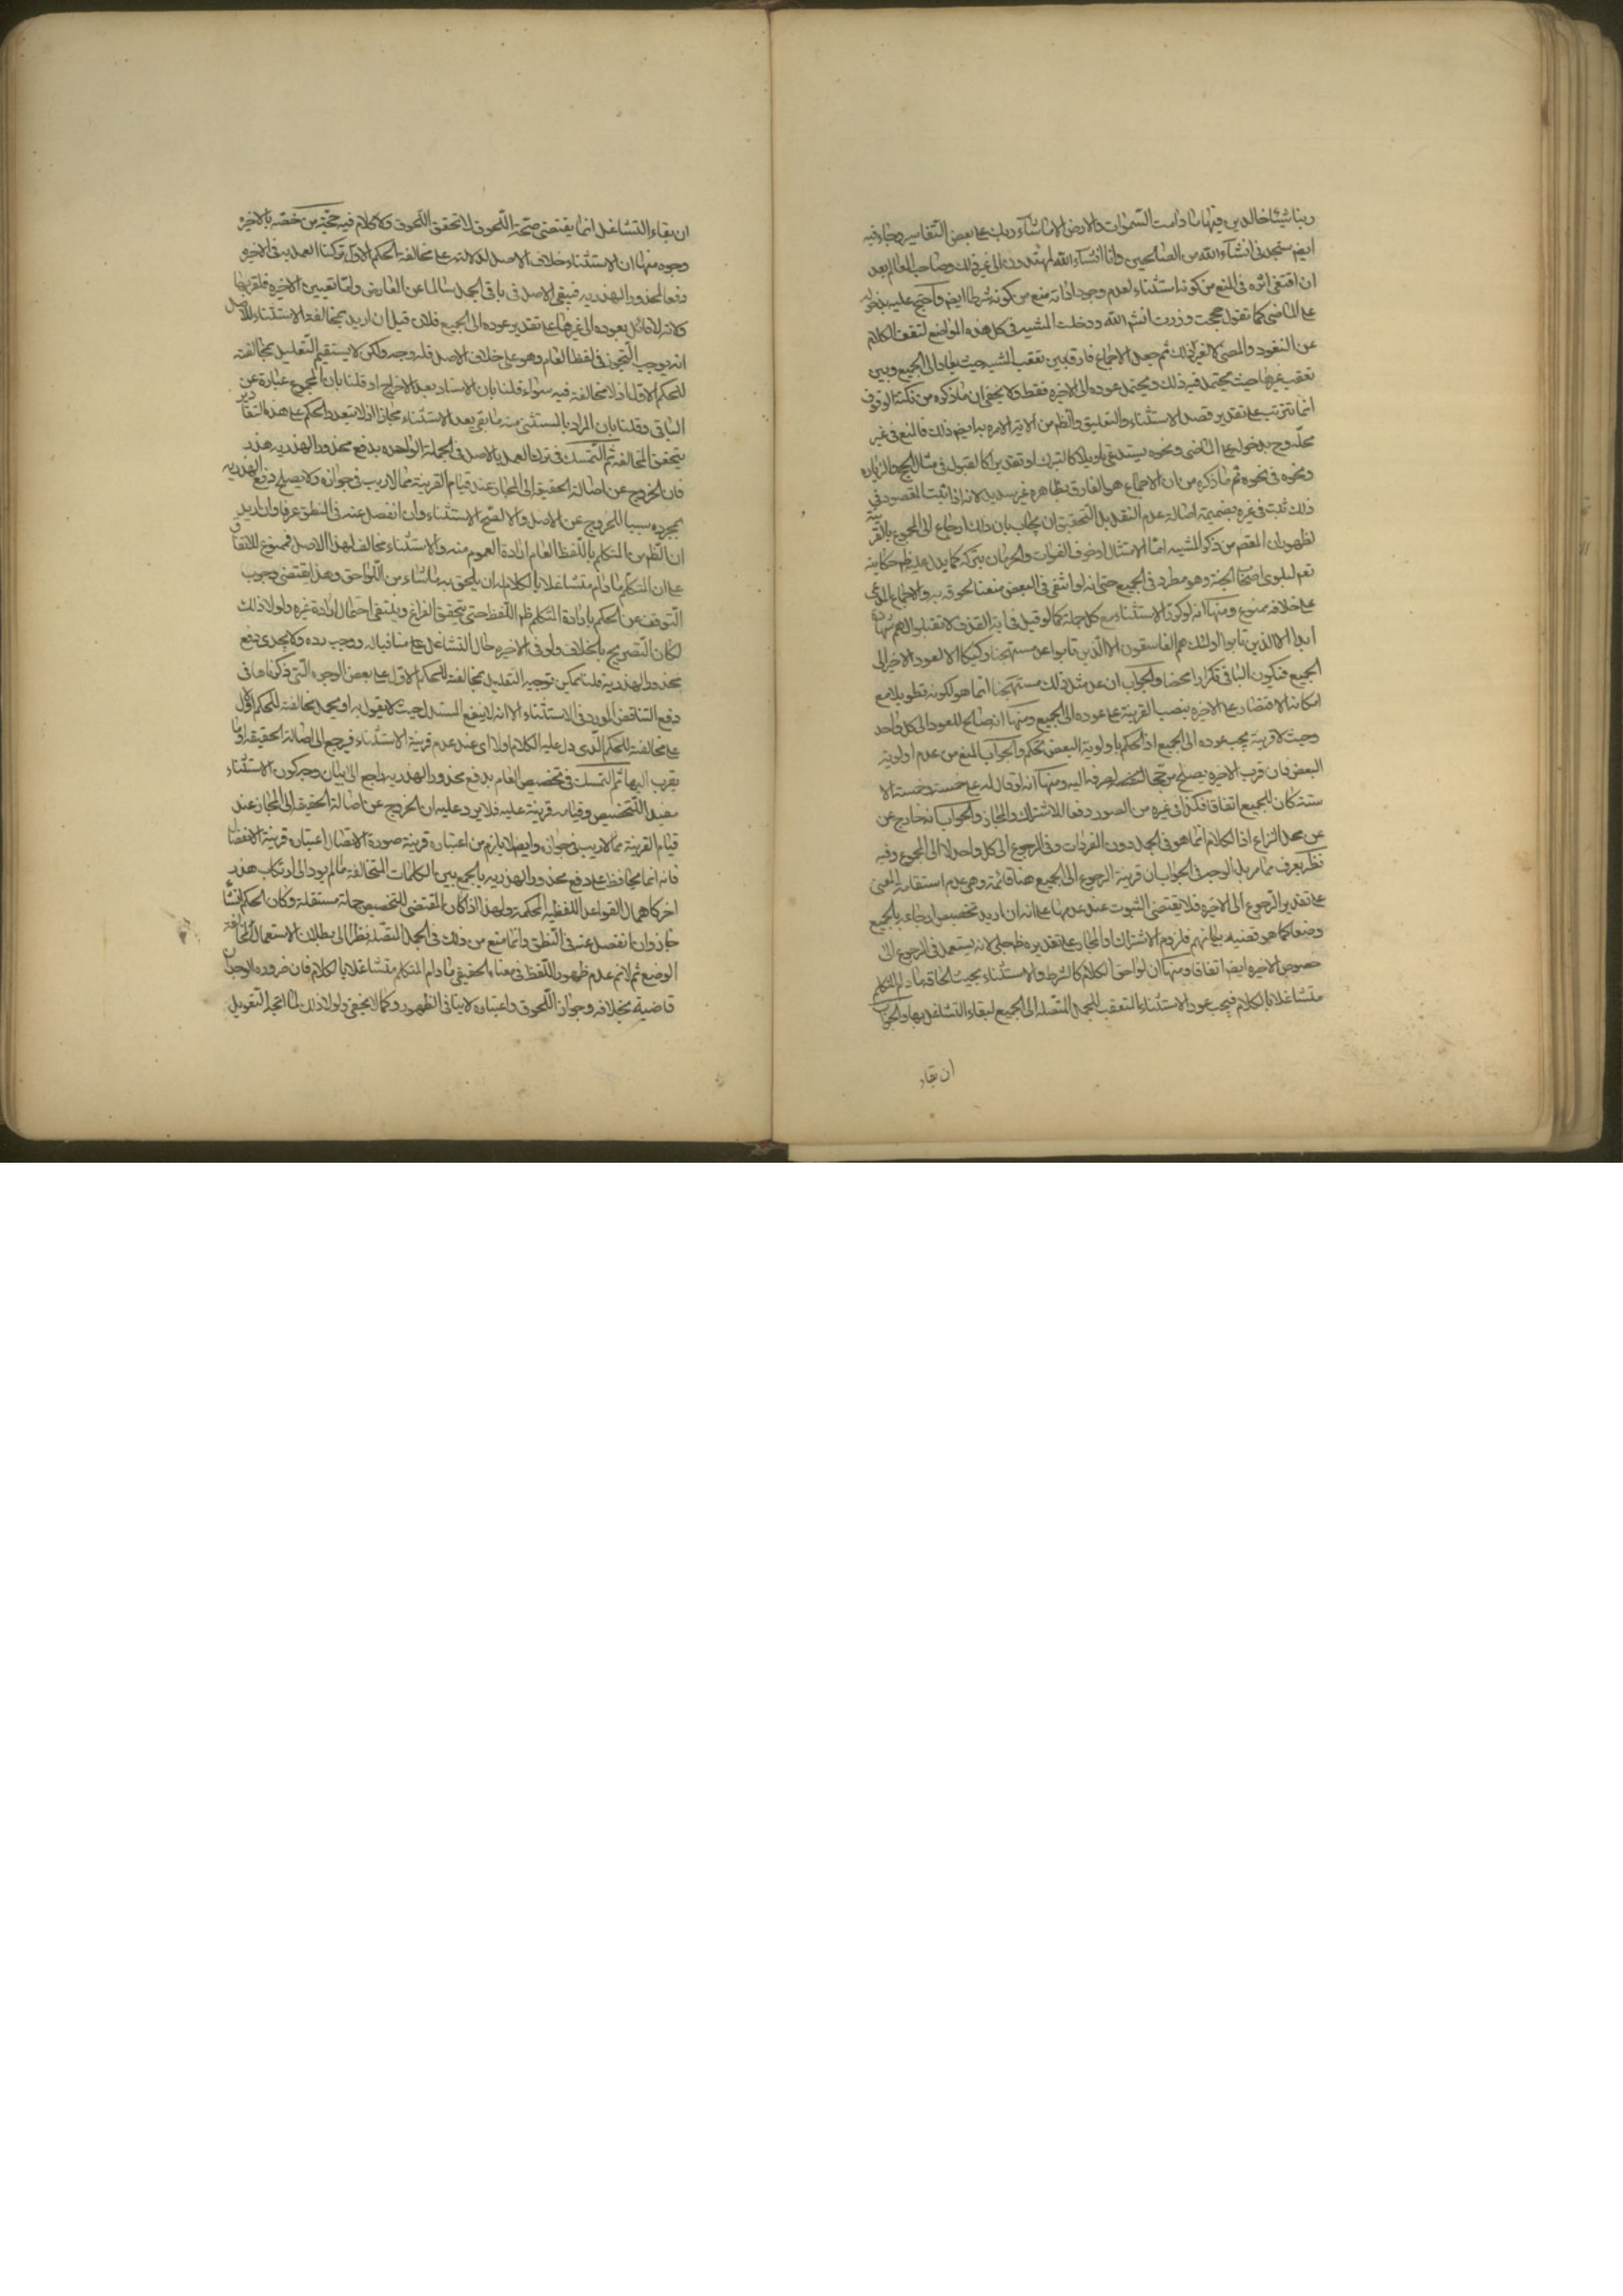 ربنا شيئا خالدين فيها ما دامت السموات والارض الا ما شاء ربك على بعض التفاسير وجاء فيه
ايضا ستجدنى انشاء الله من الصالحين وانا انشاء الله لمهتدون الى غير ذلك وصاحب المعالم بعد
ان اقتفى اثره فى المنع من كونه استثناء لعدم وجود اداته منع من كونه شرطا ايضا واحتج عليه بدخوله
على الماضى كما تقول حججت وزرت انشاء الله ودخلت المشية فى كل هذه المواضع لتقف الكلام
عن النفوذ والمضى لا لغير ذلك ثم جعل الاجماع فارقا بين تعقب المشية حيث يعاد الى الجميع وبين
تعقب غيرها حيث يحتمل فيه ذلك ويحتمل عوده الى الاخيرة فقط ولا يخفى ان ما ذكره من نكتة الوقوف
انما تترتب على تقدير قصد الاستثناء والتعليق والظم من الاية الامرة به ايضا ذلك فالمنع فى غير
محله وح بدخوله على الماضى ونحوه يستدعى تاويلا كالتبرك او تقديرا كالقبول فى مثال الحج والزياره
ونحوه فى نحوه ثم ما ذكره من ان الاجماع هو الفارق بظاهره غير سديد لانه اذا ثبت المقصود فى
ذلك ثبت فى غيره بضميمة اصالة عدم النقل بل التحقيق ان يجاب بان ذلك ارجاع الى المجموع بالقرينة
لظهور ان المقصم من ذكر المشية اما الامتثال او خوف الفوات والحرمان بتركه كما يدل عليه ظم حكايته
تعم لبلوى اصحاب الجنة وهو مطرد فى الجميع حتى انه لو انتفى فى البعض منعنا لحوقه به والاجماع المدعى
على خلافه ممنوع ومنها انه لو كرر الاستثناء مع كل جملة كما لو قيل فى اية القذف لا تقبلوا لهم شهادة
ابدا الا الذين تابوا اولئك هم الفاسقون الا الذين تابوا عد مستهجنا وركيكا الا لعود الاخير الى
الجميع فيكون الباقى تكرارا محضا والجواب ان عد مثل ذلك مستهجنا انما هو لكونه تطويلا مع
امكانه الاقتصار على الاخيرة بنصب القرينة على عوده الى الجميع ومنها انه صالح للعود الى كل واحد
وحيث لا قرينة يجب عوده الى الجميع اذ الحكم باولوية البعض تحكم والجواب المنع من عدم اولوية
البعض فان قرب الاخيرة يصلح مرجحا لصرفه اليه ومنها انه لو قال له على خمسة وخمسة الا
ستة كان للجميع اتفاقا فكذا فى غيره من الصور دفعا للاشتراك والمجاز والجواب انه خارج عن
عن محل النزاع اذ الكلام انما هو فى الجمل دون المفردات وفى الرجوع الى كل واحد لا الى المجموع وفيه
نظر يعرف مما مر بل الوجه فى الجواب ان قرينة الرجوع الى الجميع هنا قائمة وهى عدم استقامة المعنى
على تقدير الرجوع الى الاخيرة فلا يقتضى الثبوت عند عدمها على انه ان اريد تخصيص ارجاعه بالجميع
وضعا كما هو قضية بيانهم فلزوم الاشتراك او المجاز على تقديره ظم جلى لانه يستعمل فى الرجوع الى
خصوص الاخيرة ايضا اتفاقا ومنها ان لواحق الكلام كالشرط والاستثناء يجب الحاقه ما دام المتكلم
متشاغلا بالكلام فيجب عود الاستثناء المتعقب للجمل المتصلة الى الجميع لبقاء التشاغل بها والجواب
ان بقاء
ان بقاء التشاغل انما يقتضى صحة اللحوق لا تحقق اللحوق ولا كلام فيه حجة من خصه بالاخيرة
وجوه منها ان الاستثناء خلاف الاصل لدلالته على مخالفة الحكم الاول تركنا العمل به فى الاخيرة
دفعا لمحذور الهذرية فيبقى الاصل فى باقى الجمل سالما عن المعارض واما تعيين الاخيرة فلقربها
ولانه لا قائل بعوده الى غيرها على تقدير عوده الى الجميع فلان قيل ان اريد بمخالفة الاستثناء للاصل
انه يوجب التجوز فى لفظ العام وهو على خلاف الاصل فله وجه ولكن لا يستقيم التعليل بمخالفته
للحكم الاول اذ لا مخالفة فيه سواء قلنا بان الاسناد بعد الاخراج او قلنا بان المجموع عبارة عن
الباقى وقلنا بان المراد بالمستثنى منه ما بقى بعد الاستثناء مجازا اذ لا تعدد الحكم على هذه التقادير
يتحقق المخالفة ثم التمسك فى ترك العمل بالاصل فى الجملة الواحدة بدفع محذور الهذرية هذر
فان الخروج عن اصالة الحقيقة الى المجاز عند قيام القرينة مما لا ريب فى جوازه ولا يصلح دفع الهذرية
بمجرده سببا للخروج عن الاصل والا لصح الاستثناء وان انفصل عنه فى النطق عرفا وان اريد
ان الظم من المتكلم باللفظ العام ارادة العموم منه والاستثناء مخالف لهذا الاصل فممنوع للاتفاق
على ان المتكلم ما دام متشاغلا بالكلام له ان يلحق به ما شاء من اللواحق وهذا يقتضى وجوب
التوقف عن الحكم بارادة المتكلم ظم اللفظ حتى يتحقق الفراغ وينتفى احتمال ارادة غيره ولولا ذلك
لكان التصريح بالخلاف ولو فى الاخيرة حال التشاغل على منافيا له ووجب رده ولا يجدى دفع
محذور الهذرية قلنا يمكن توجيه التعليل بمخالفة للحكم الاول على بعض الوجوه التى ذكرناها فى
دفع التناقض المورد فى الاستثناء الا انه لا ينفع المستدل حيث لا يقول به او يحمل مخالفته للحكم الاول
على مخالفته للحكم الذى دل عليه الكلام اولا اى عند عدم قرينة الاستثناء فيرجع الى اصالة الحقيقة او ما
يقرب اليها ثم التمسك فى تخصيص العام بدفع محذور الهذرية راجع الى بيان وجه كون الاستثناء
مفيد التخصيص وقيامه قرينة عليه فلا يرد عليه ان الخروج عن اصالة الحقيقة الى المجاز عند
قيام القرينة مما لا ريب فى جوازه وايضا لا يلزم من اعتباره قرينة صورة الاتصال اعتباره قرينة الانفصال
فانه انما يحافظ على دفع محذور الهذرية بالجمع بين الكلمات المتخالفة ما لم يود الى ارتكاب هذر
اخر كاهمال القواعد اللفظية المحكمة ولهذا اذا كان المقتضى للتخصيص جملة مستقلة وكان الحكم انشاء
جاز وان انفصل عنه فى النطق وانما منع من ذلك فى الجمل المتصلة نظرا الى بطلان الاستعمال لمخالفة
الوضع ثم لا نم عدم ظهور اللفظ فى معناه الحقيقى ما دام المتكلم متشاغلا بالكلام فان ضرورة الوجدان
قاضية بخلافه وجواز اللحوق واعتباره لا ينافى الظهور وكما لا يخفى ولولا ذلك لما اتجه التعويل